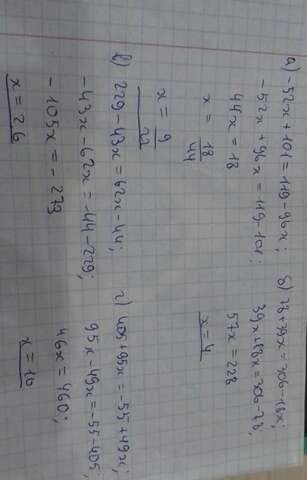 а) -52x+101=119-96x;
-52x+96x=119-101;
44x=18
x=18/44
x=9/22
б) 78+39x=306-18x;
39x+18x=306-78;
57x=228
x=4
в) 229-43x=62x-44;
-43x-62x=-44-229;
-105x=-273
x=2,6
г) 405+95x=-55+49x;
95x-49x=-55-405;
46x=460;
x=10